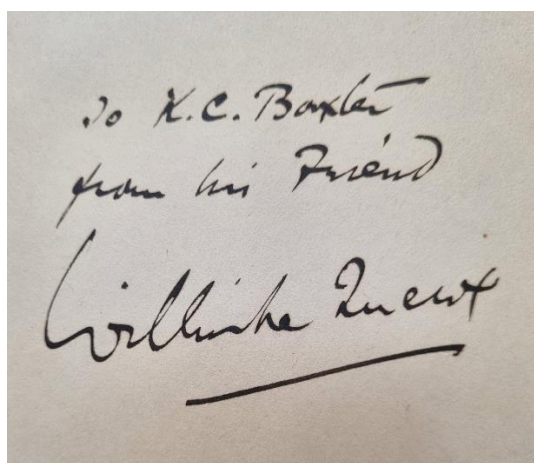 To K.C. Baxter
from his Friend
William Le Queux